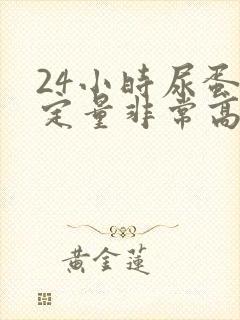 24小時尿蛋
定量非常高
黃金蓮